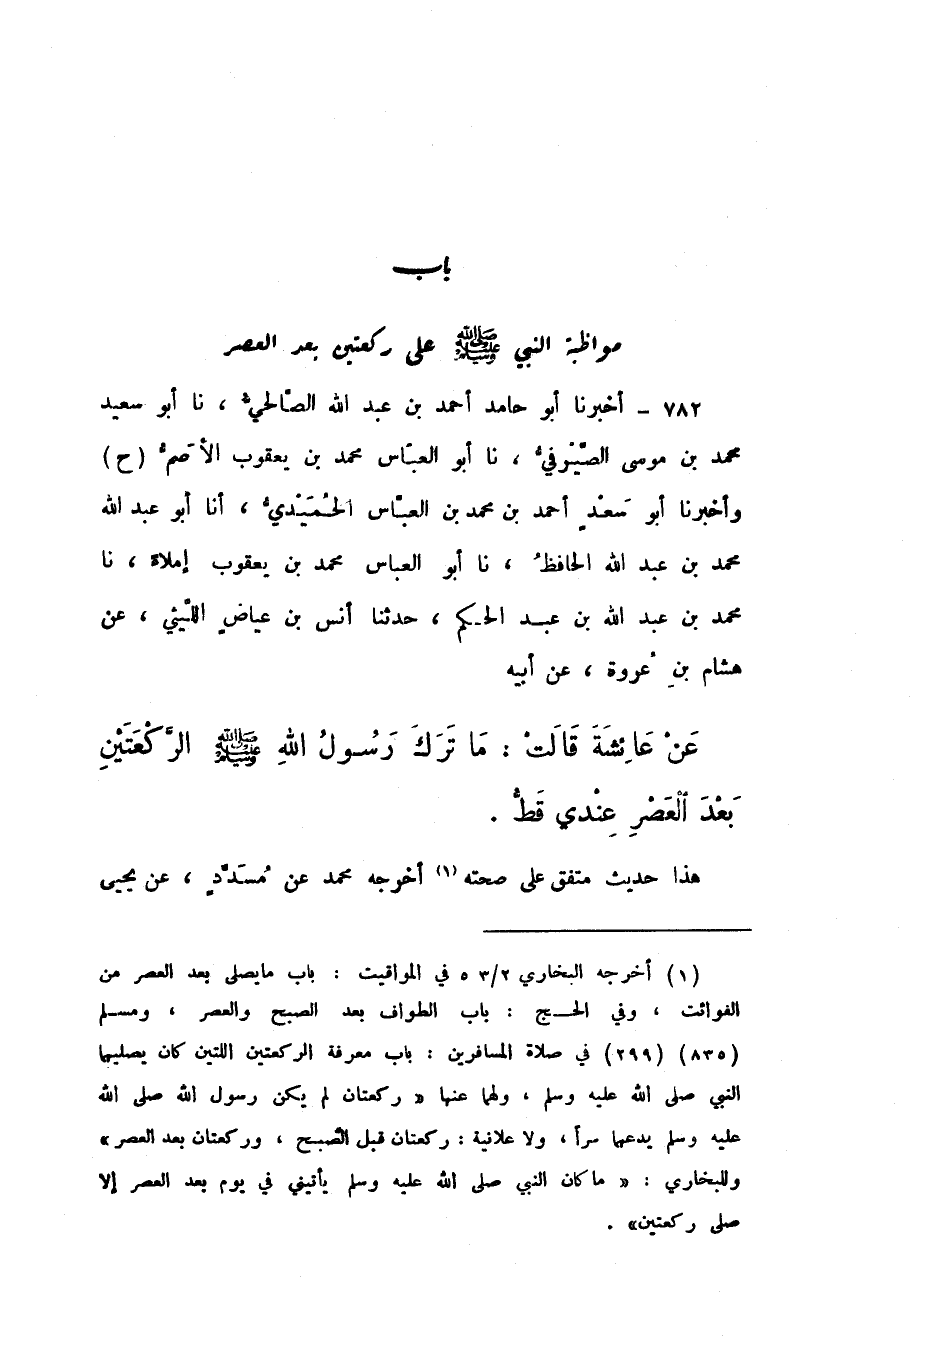 باب
مواظبة النبي ﷺ على ركعتين بعد العصر
٧٨٢ ـ أخبرنا أبو حامد أحمد بن عبد الله الصّالحيُّ ، نا أبو سعيد
محمد بن موسى الصَّيْرفيُّ ، نا أبو العبّاس محمد بن يعقوب الأَصمُّ (ح)
وأخبرنا أبو سَعْدٍ أحمد بن محمد بن العبّاس الحُمَيْديُّ ، أنا أبو عبد الله
محمد بن عبد الله الحافظُ ، نا أبو العباس محمد بن يعقوب إملاءً ، نا
محمد بن عبد الله بن عبد الحكم ، حدثنا أنس بن عياضٍ اللَّيثي ، عن
هشام بنِ عُروة ، عن أبيه
عَنْ عَائِشَةَ قَالَتْ : مَا تَرَكَ رَسُولُ اللهِ ﷺ الرَّكْعَتَيْنِ
بَعْدَ العَصْرِ عِنْدي قَطُّ .
هذا حديث متفق على صحته (١) أخرجه محمد عن مُسَدَّدٍ ، عن يحيى
(١) أخرجه البخاري ٢/٥٣ في المواقيت : باب مايصلى بعد العصر من
الفوائت ، وفي الحج : باب الطواف بعد الصبح والعصر ، ومسلم
(٨٣٥) (٢٩٩) في صلاة المسافرين : باب معرفة الركعتين اللتين كان يصليها
النبي صلى الله عليه وسلم ، ولهما عنها « ركعتان لم يكن رسول الله صلى الله
عليه وسلم يدعهما سراً ، ولا علانية : ركعتان قبل الصبح ، وركعتان بعد العصر »
وللبخاري : « ما كان النبي صلى الله عليه وسلم يأتيني في يوم بعد العصر إلا
صلى ركعتين» .